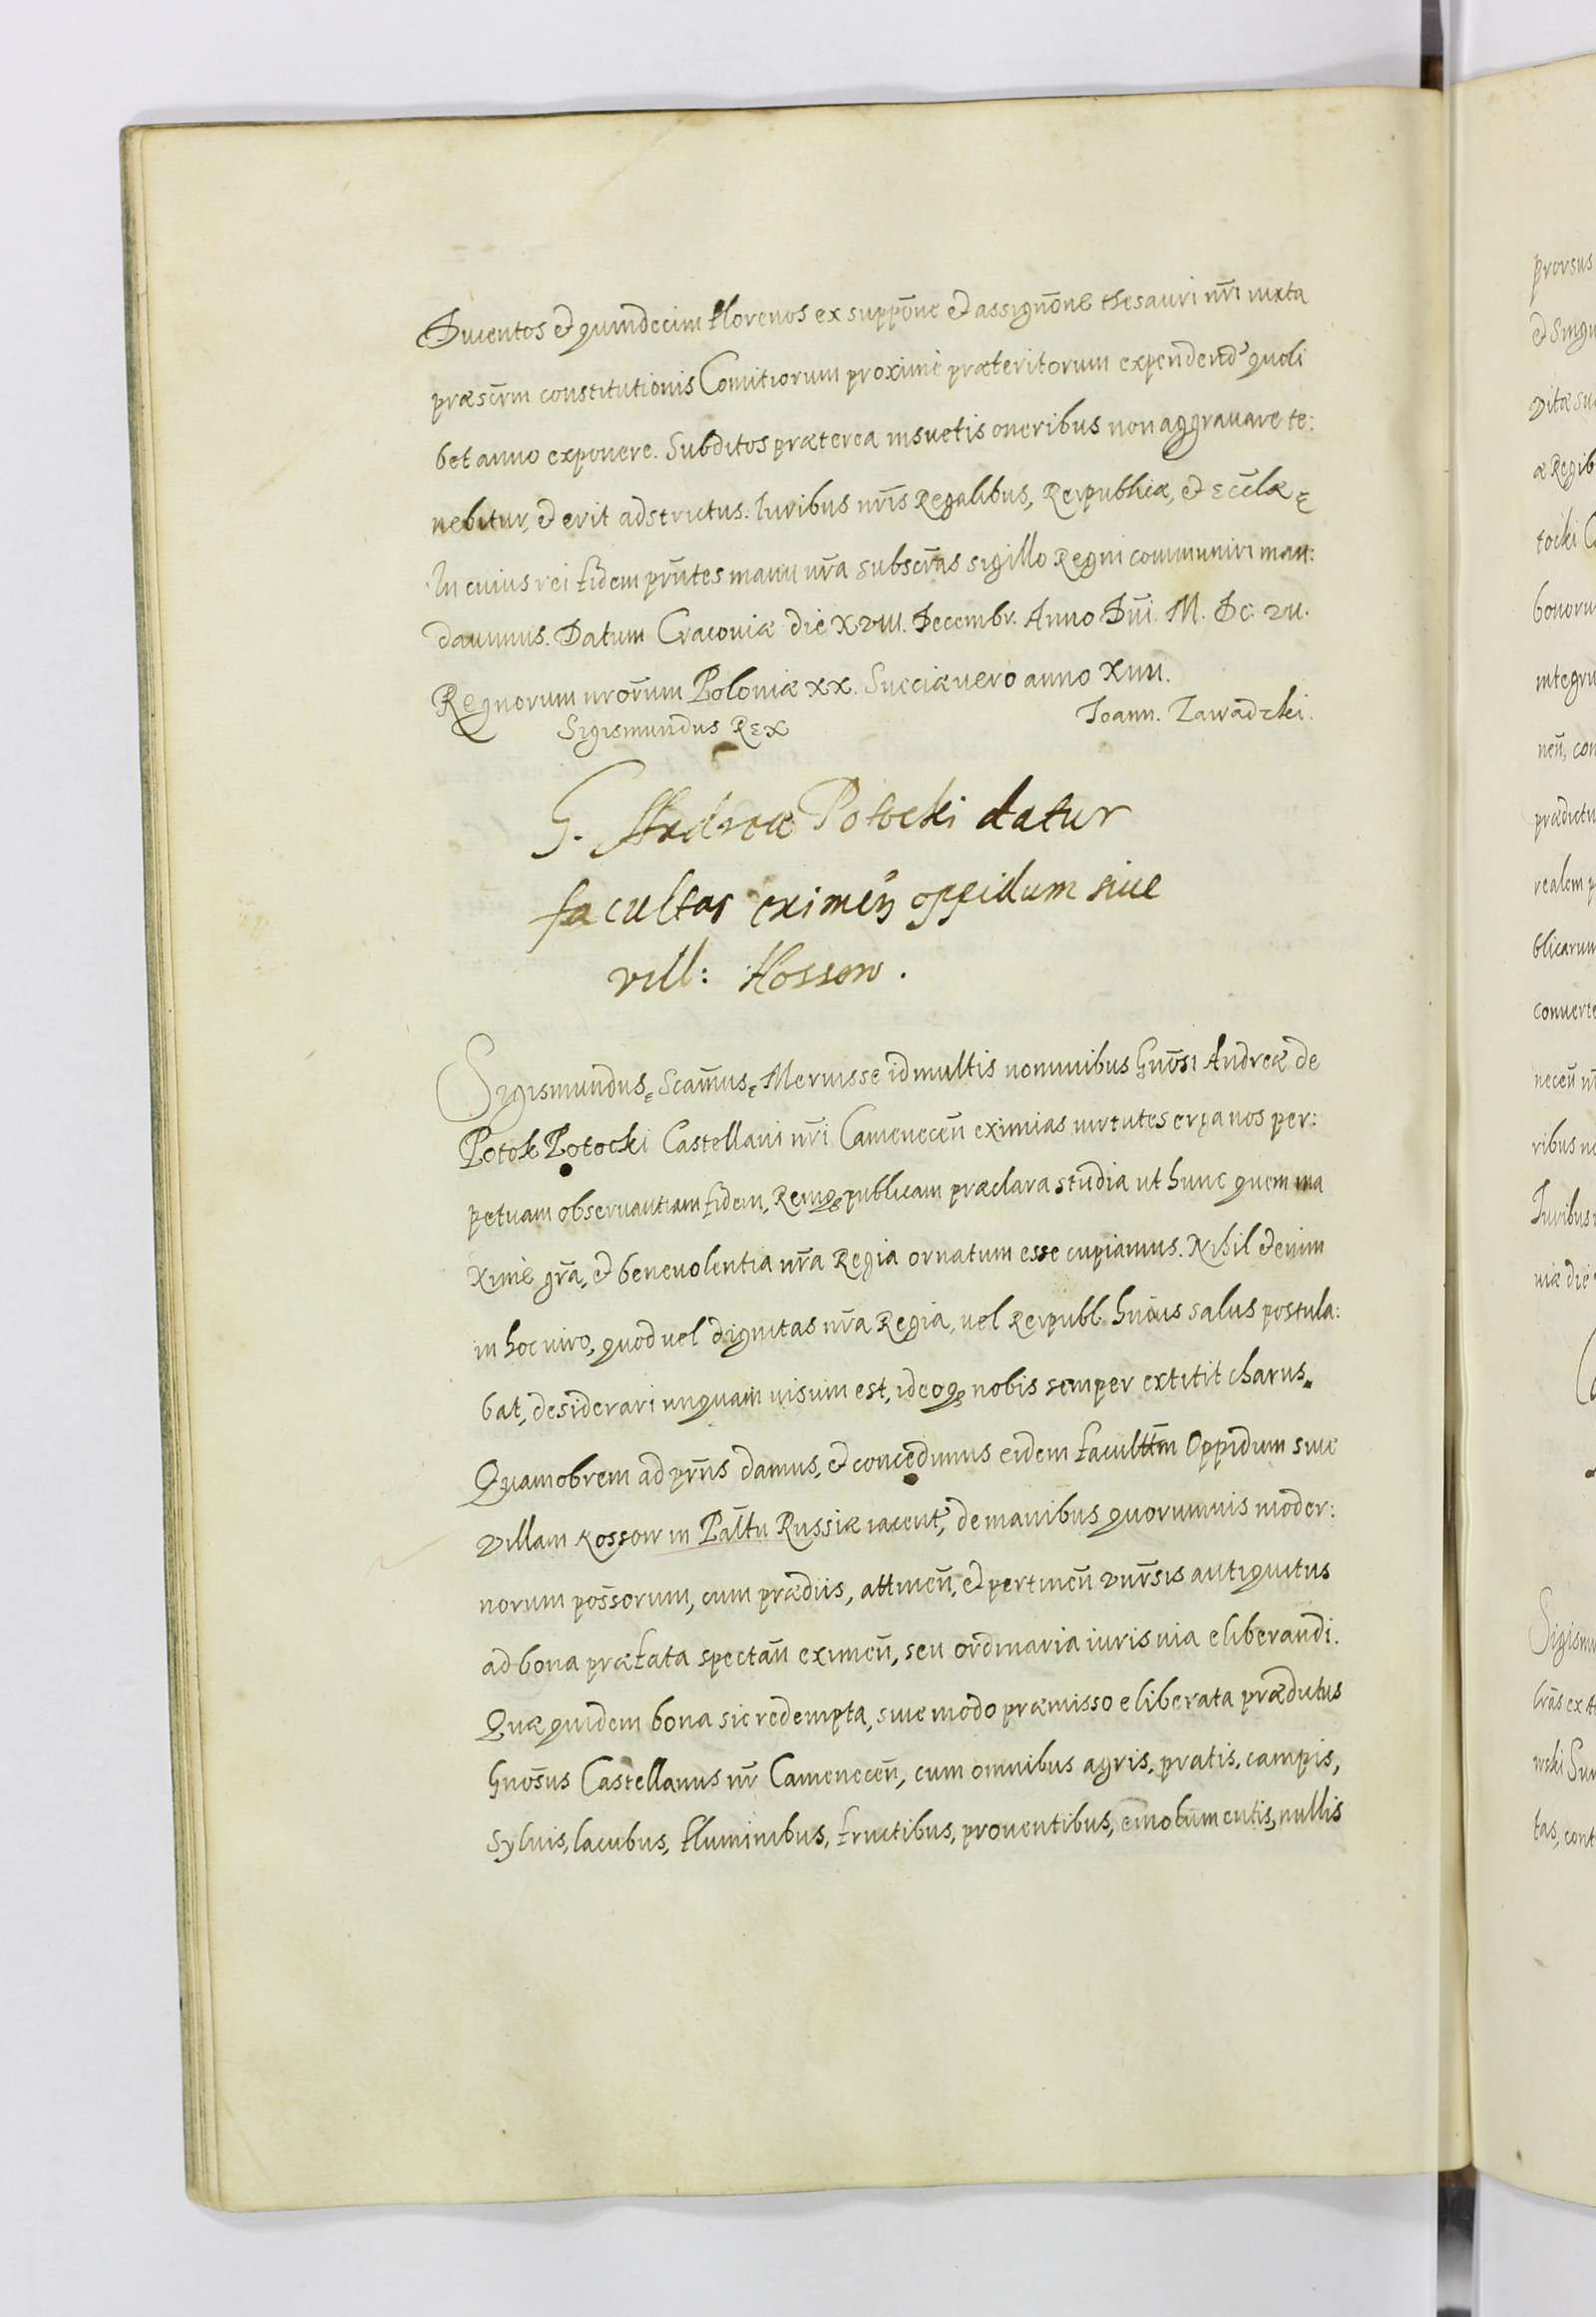 Ducentos et quindecim florenos ex suppōne et assignōne thesauri nr̄i iuxta
praescr̄m constitutionis Comitiorum proximè praeteritorum expendend' quoli
bet anno exponere. Subditos praeterea insuetis oneribus non aggrauare te:
nebitur, et erit adstrictus. Iuribus nr̄is Regalibus, Reipublicæ, et Eccl̄æ
In cuius rei fidem prn̄tes manu nr̄a subscr̄as sigillo Regni communiri man:
dauimus. Datum Cracouiæ die XVIII. Decembr. Anno Dn̄i. M. DC. VII.
Regnorum nrōrum Poloniæ XX. Sueciæ uero anno XIIII.
Sigismundus Rex
Ioann. Zawadzki.
G. Andreæ Potocki datur
facultas eximen̄ oppidum siue
vill: Kossow.
Sigismundus, Scam̄us, Meruisse id multis nominibus Gnōsi Andreæ de
Potok Potocki Castellani nr̄i Camenecen̄ eximias uirtutes erga nos per:
petuam obseruantiam fidem, Remq; publicam præclara studia ut hunc quem ma
ximè gr̄a, et beneuolentia nr̄a Regia ornatum esse cupiamus. Nihil etenim
in hoc uiro, quod uel dignitas nr̄a Regia, uel Reipubl. huius salus postula:
bat, desiderari unquam uisum est, ideoq; nobis semper extitit charus.
Quamobrem ad prn̄s damus, et concedimus eidem facultt̄m Oppidum siue
villam Kossow in Pāltu Russiæ iacent', de manibus quorumuis moder:
norum poss̄orum, cum prædiis, attinen̄, et pertinen̄ vnr̄sis antiquitus
ad bona præfata spectan̄ eximen̄, seu ordinaria iuris uia eliberandi.
Quæ quidem bona sic redempta, siue modo præmisso eliberata prædictus
Gnōsus Castellanus nr̄ Camenecen̄, cum omnibus agris, pratis, campis,
syluis, lacubus, fluminibus, fructibus, prouentibus, emolumentis, nullis
prorsus
et singu
vitæ su
æ Regib
tocki C
bonoru
integru
nen̄, con
prædictu
realem p
blicarum
conuerte
necen̄ n
ribus no
Iuribus
uiæ die
Sigismu
lrās ex A
wski Sum
tas, cont